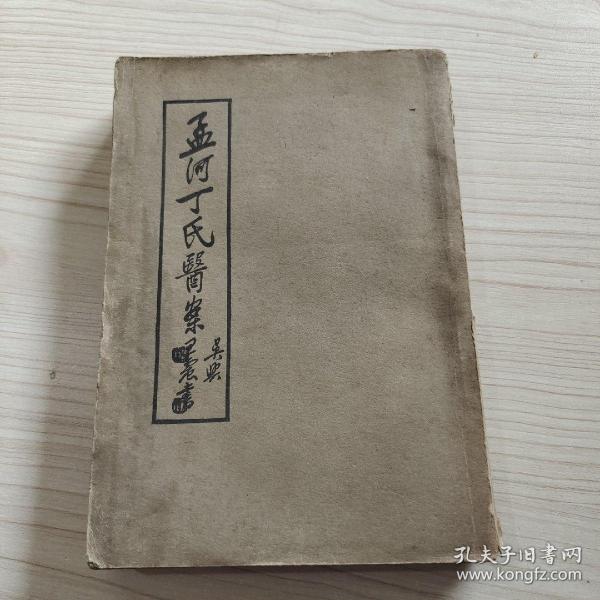 孟河丁氏醫案
吳興
書
孔夫子旧書网
www.kongfz.com